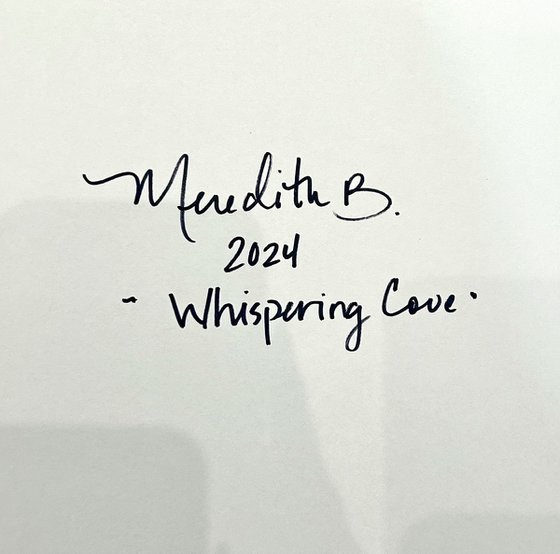 Meredith B.
2024
- Whispering Cove -